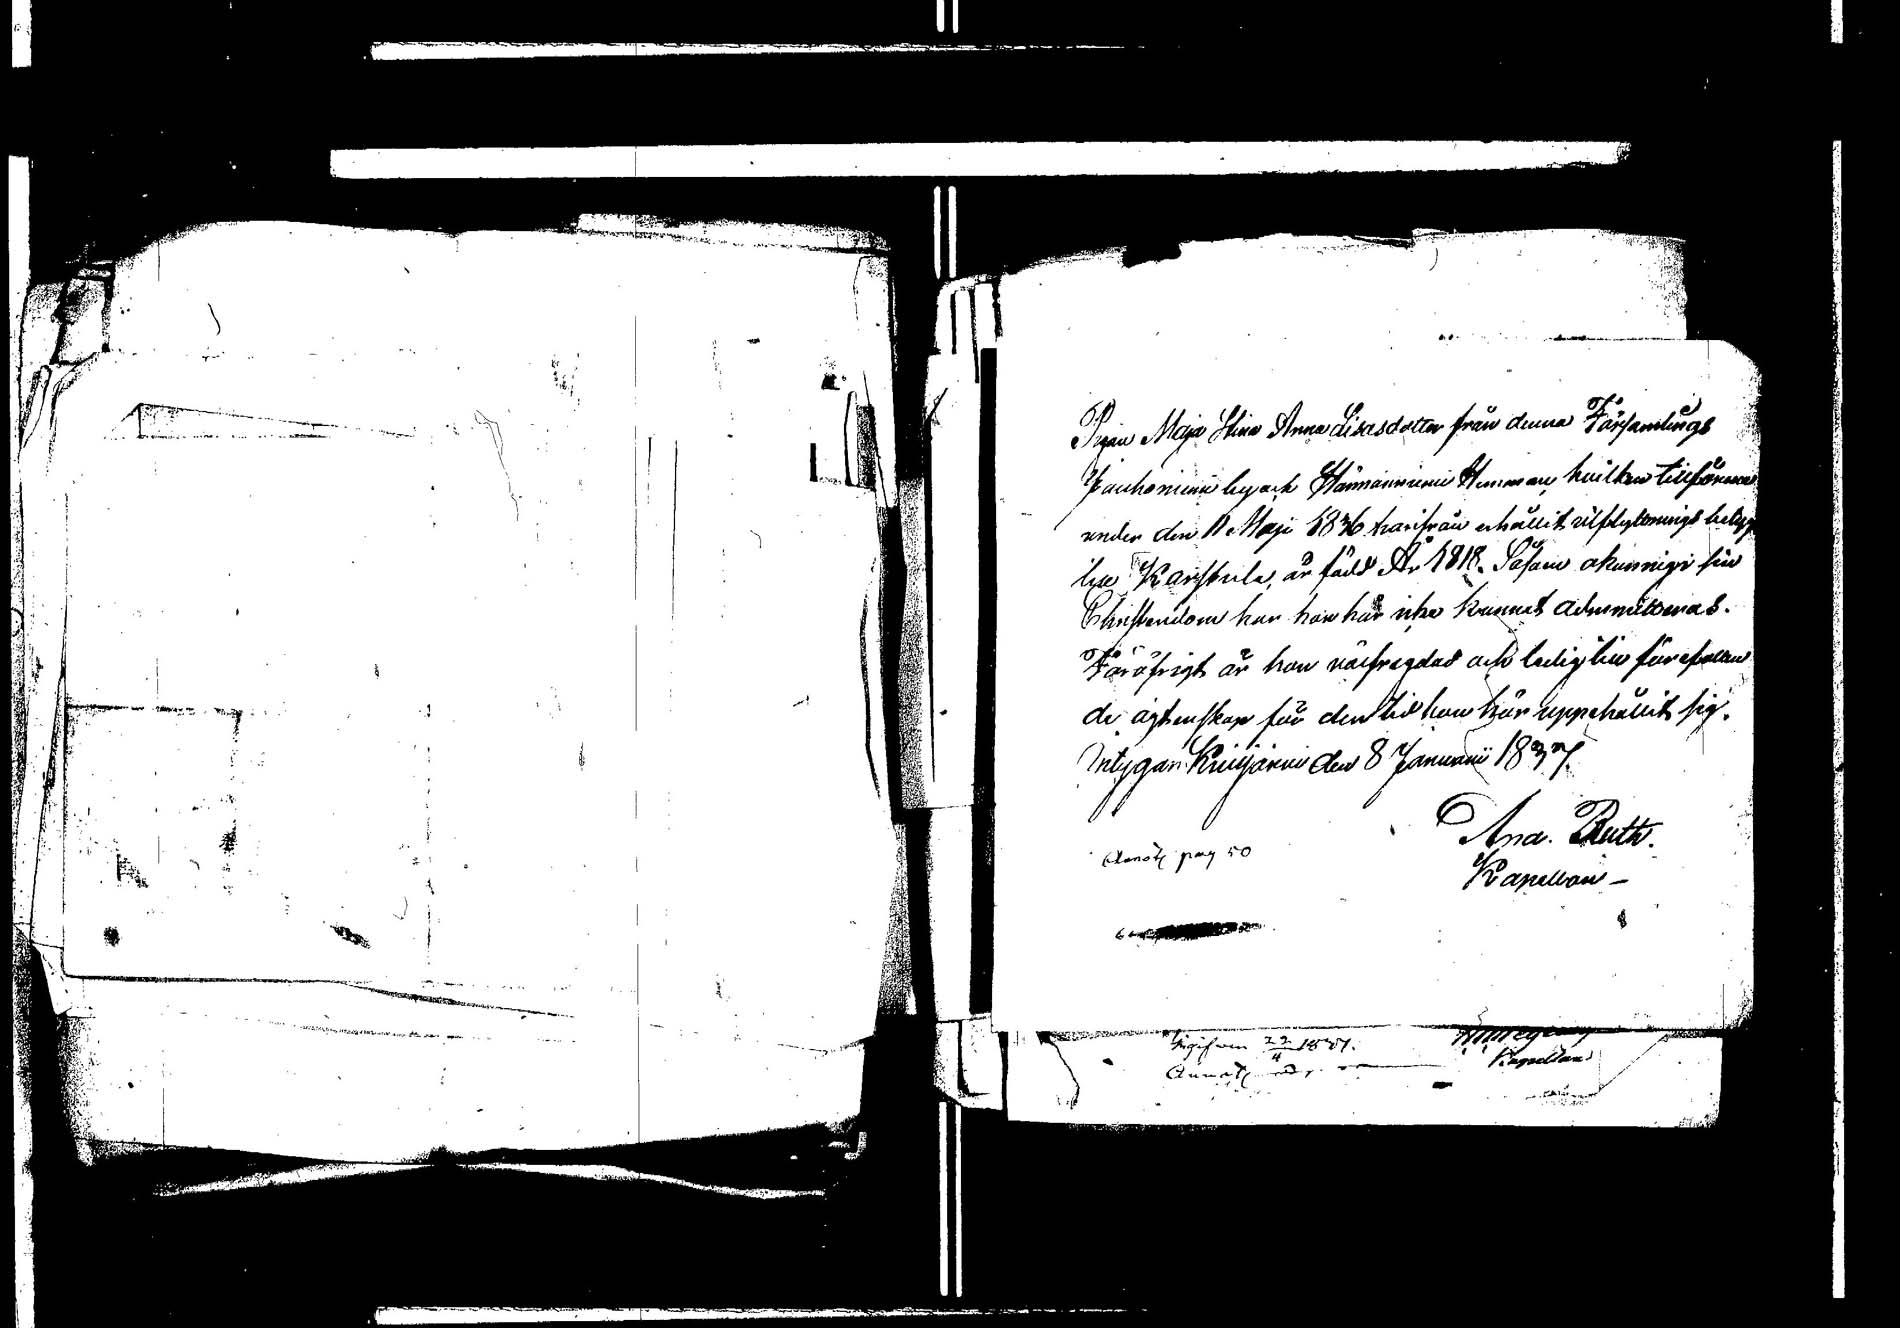 Pigan Maja Stina Anna Lisasdotter från denna Församlings
Jauhoniemi by och Hämäänniemi Hemman, hvilken tillförene
under den 11 Maji 1836 härifrån erhållit utflyttnings betyg
till Karstula, är född År 1818. Såsom okunnig i sin
Christendom har hon här icke kunnat admitteras.
Föröfrigt är hon väl fregdad och ledig till förefallan
de ägtenskap för den tid hon här uppehållit sig.
Intygar Kivijärvi den 8 Januarii 1837.
And. Ruth.
Kapellan –
Annot pag 50
22/4 1837.
Kapellan
Annot